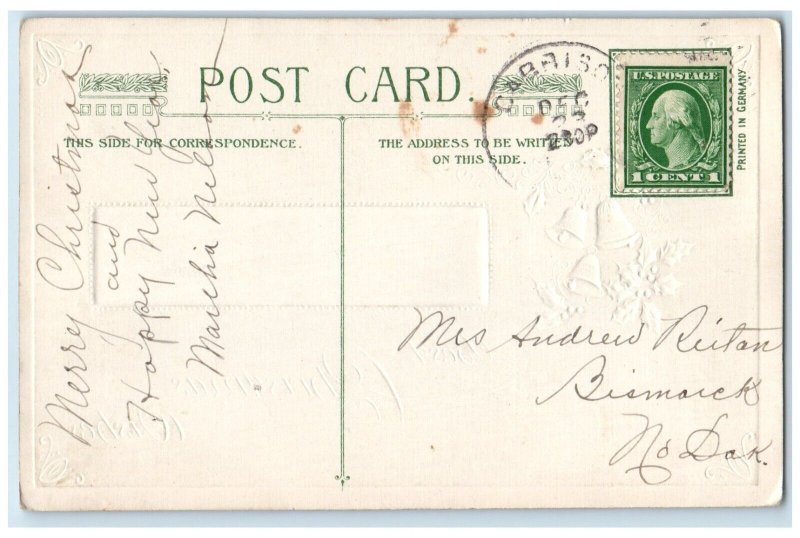 POST CARD.
THIS SIDE FOR CORRESPONDENCE.
THE ADDRESS TO BE WRITTEN
ON THIS SIDE.
GARRISO
DEC
23
230P
U.S.POSTAGE
1 CENT 1
PRINTED IN GERMANY
Merry Christmas
and
Happy New Year
Martha Nelson
Mrs Andrew Rutan
Bismarck
No Dak.
Christmas